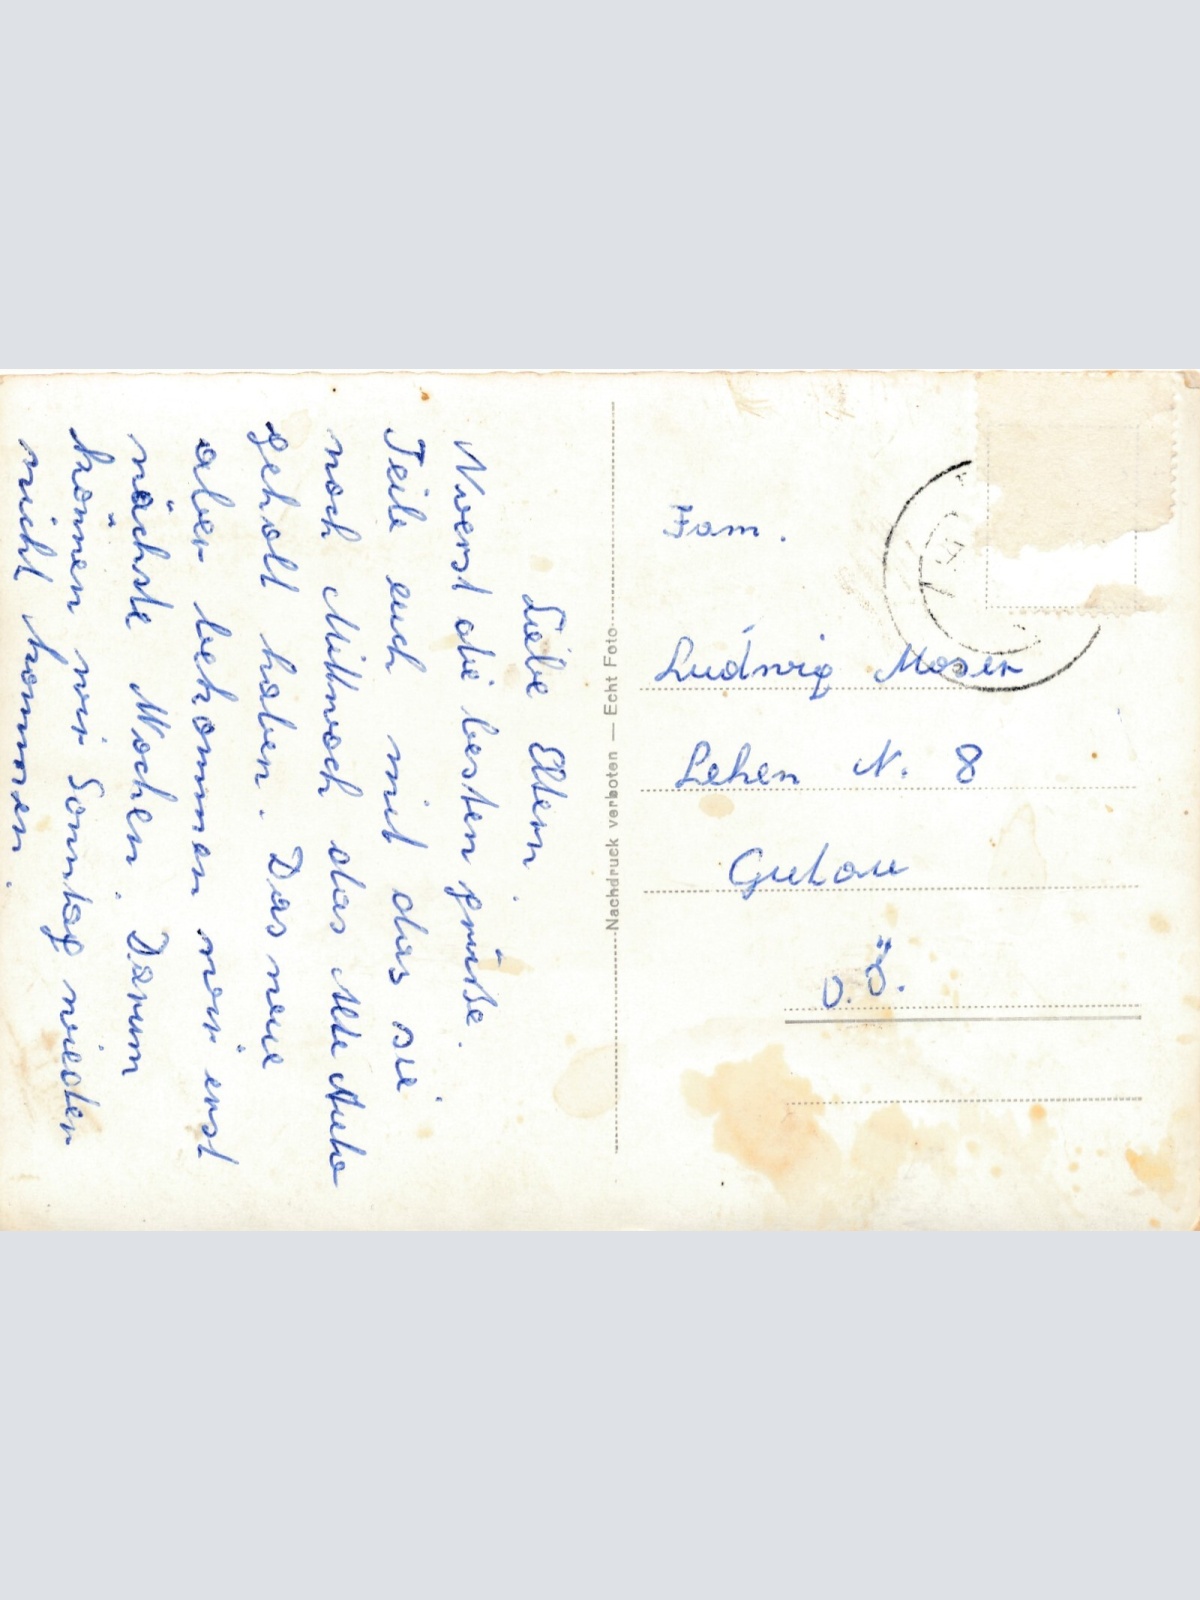 Liebe Eltern
Zuerst die besten grüße.
Teile euch mit das sie
noch Mittwoch das Alte Auto
geholt haben. Das neue
aber bekommen wir erst
nächste Wochen. Darum
können wir Sonntag wieder
nicht kommen.
Nachdruck verboten — Echt Foto
Fam.
Ludwig Moser
Lehen N. 8
Gutau
O.Ö.